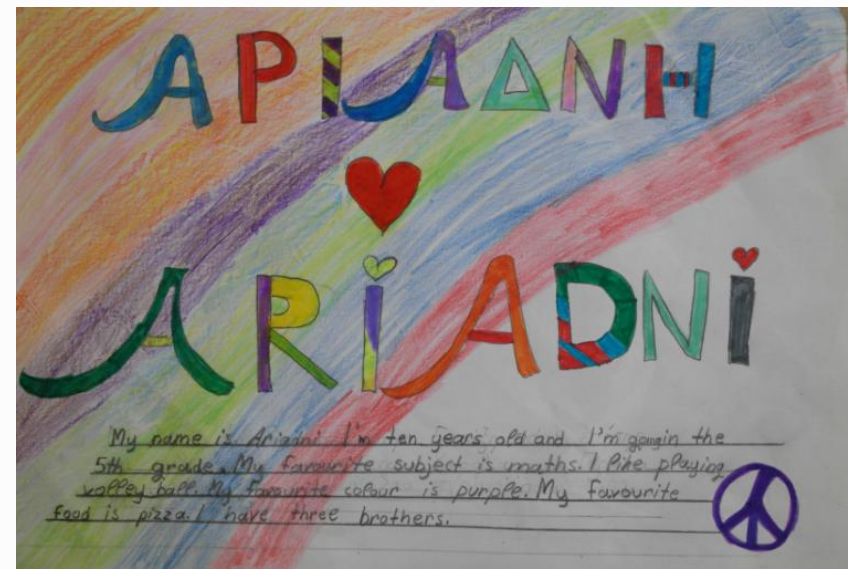 ΑΡΙΑΔΝΗ
ARiADNi
My name is Ariadni I'm ten years old and I'm going in the
5th grade. My favourite subject is maths. I like playing
volley ball. My favourite colour is purple. My favourite
food is pizza. I have three brothers.